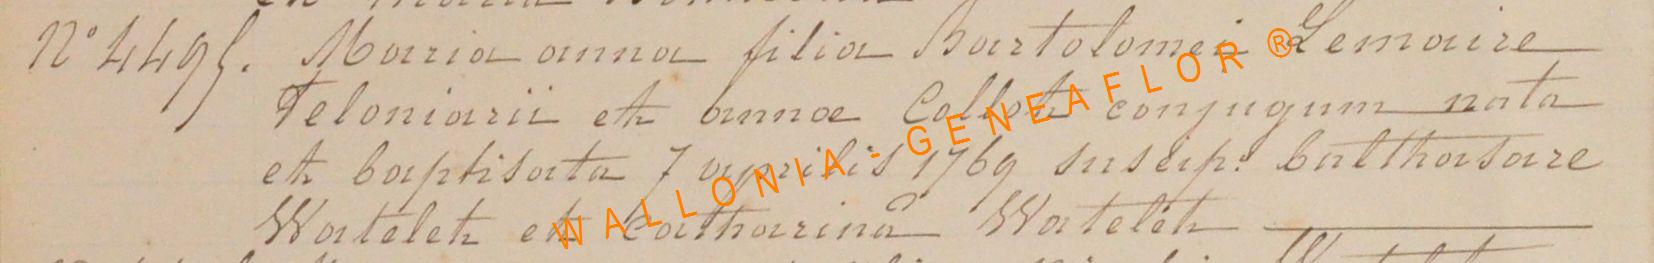 N° 4495. Maria anna filia Bartolomei Lemaire
Teloniarii et annae Collet conjugum nata
et baptisata 7 aprilis 1769 suscep: balthasare
Watelet et Catharinâ Watelet
WALLONIA - GENEAFLOR ®